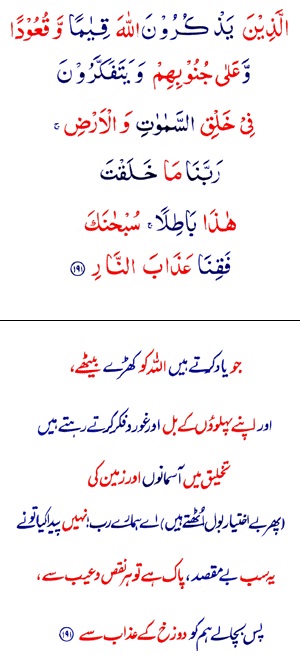 الَّذِيْنَ يَذْكُرُوْنَ اللّٰهَ قِيٰمًا وَّقُعُوْدًا
وَّعَلٰى جُنُوْبِهِمْ وَيَتَفَكَّرُوْنَ
فِىْ خَلْقِ السَّمٰوٰتِ وَالْاَرْضِ ۚ
رَبَّنَا مَا خَلَقْتَ
هٰذَا بَاطِلًا ۚ سُبْحٰنَكَ
فَقِنَا عَذَابَ النَّارِ ﴿۱۹۱﴾
جو یاد کرتے ہیں اللہ کو کھڑے بیٹھے،
اور اپنے پہلوؤں کے بل اور غور و فکر کرتے رہتے ہیں
تخلیق میں آسمانوں اور زمین کی
(پھر بے اختیار بول اُٹھتے ہیں) اے ہمارے رب! نہیں پیدا کیا تونے
یہ سب بے مقصد، پاک ہے تو ہر نقص و عیب سے،
پس بچالے ہم کو دوزخ کے عذاب سے ﴿۱۹۱﴾